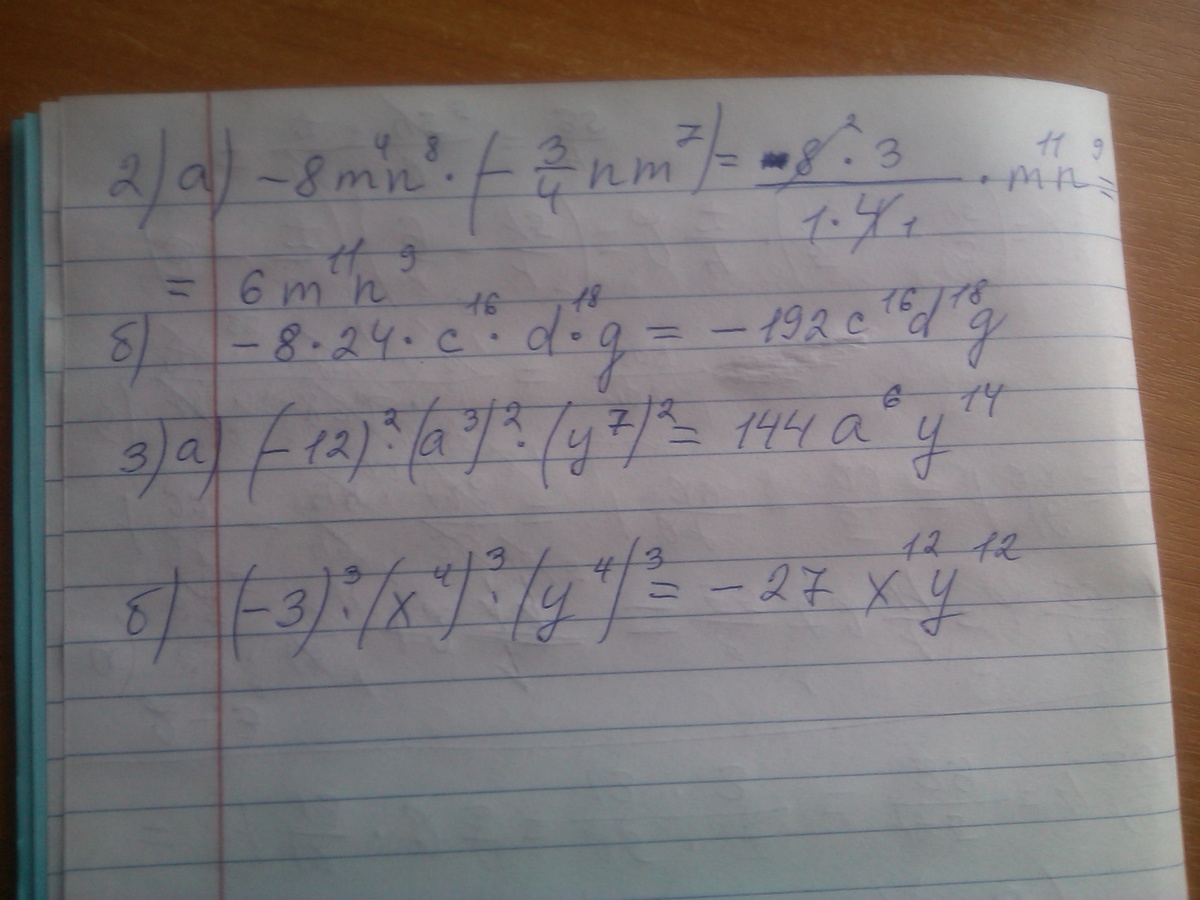 2) а) -8m⁴n⁸ · (-3/4 nm⁷) = 8² · 3 / 1 · 4₁ · m¹¹n⁹ =
= 6m¹¹n⁹
б) -8 · 24 · c¹⁶ · d¹⁸ · g = -192c¹⁶d¹⁸g
3) а) (-12)² · (a³)² · (y⁷)² = 144a⁶y¹⁴
б) (-3)³ · (x⁴)³ · (y⁴)³ = -27x¹²y¹²